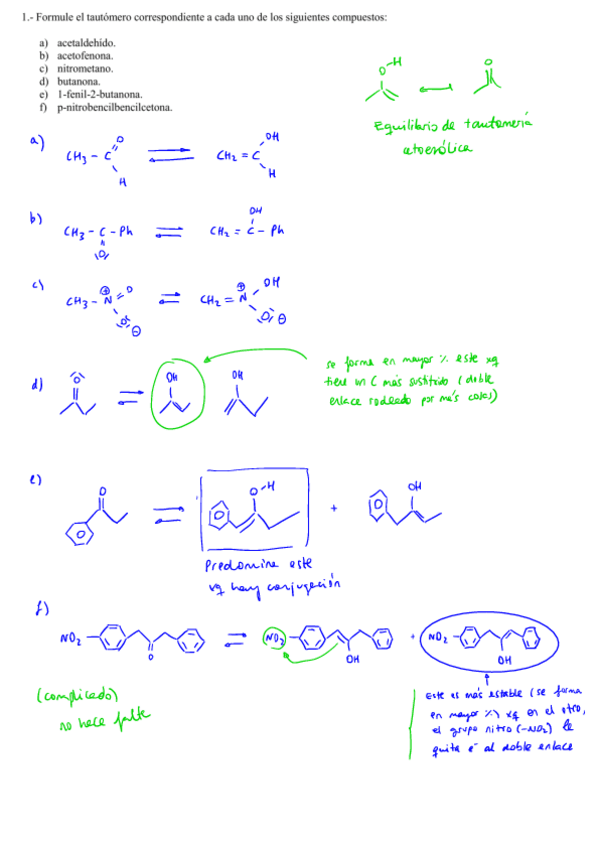 1.- Formule el tautómero correspondiente a cada uno de los siguientes compuestos:
a) acetaldehido.
b) acetofenona.
c) nitrometano.
d) butanona.
e) 1-fenil-2-butanona.
f) p-nitrobencilbencilcetona.
O-H
O
Equilibrio de tautomería
cetoenólica
a)
CH3 - C
O
H
CH2 = C
OH
H
b)
CH3 - C - Ph
|O|
CH2 = C - Ph
OH
c)
CH3 - N = O
⊕
|O| ⊖
CH2 = N
⊕
OH
|O| ⊖
d)
O
OH
OH
se forma en mayor % este xq
tiene un C más sustituido (doble
enlace rodeado por más cosas)
e)
O
O-H
+
OH
Predomina este
xq hay conjugación
f)
NO2
O
NO2
OH
+
NO2
OH
(complicado)
no hace falta
Este es más estable (se forma
en mayor %) xq en el otro,
el grupo nitro (-NO2) le
quita e⁻ al doble enlace